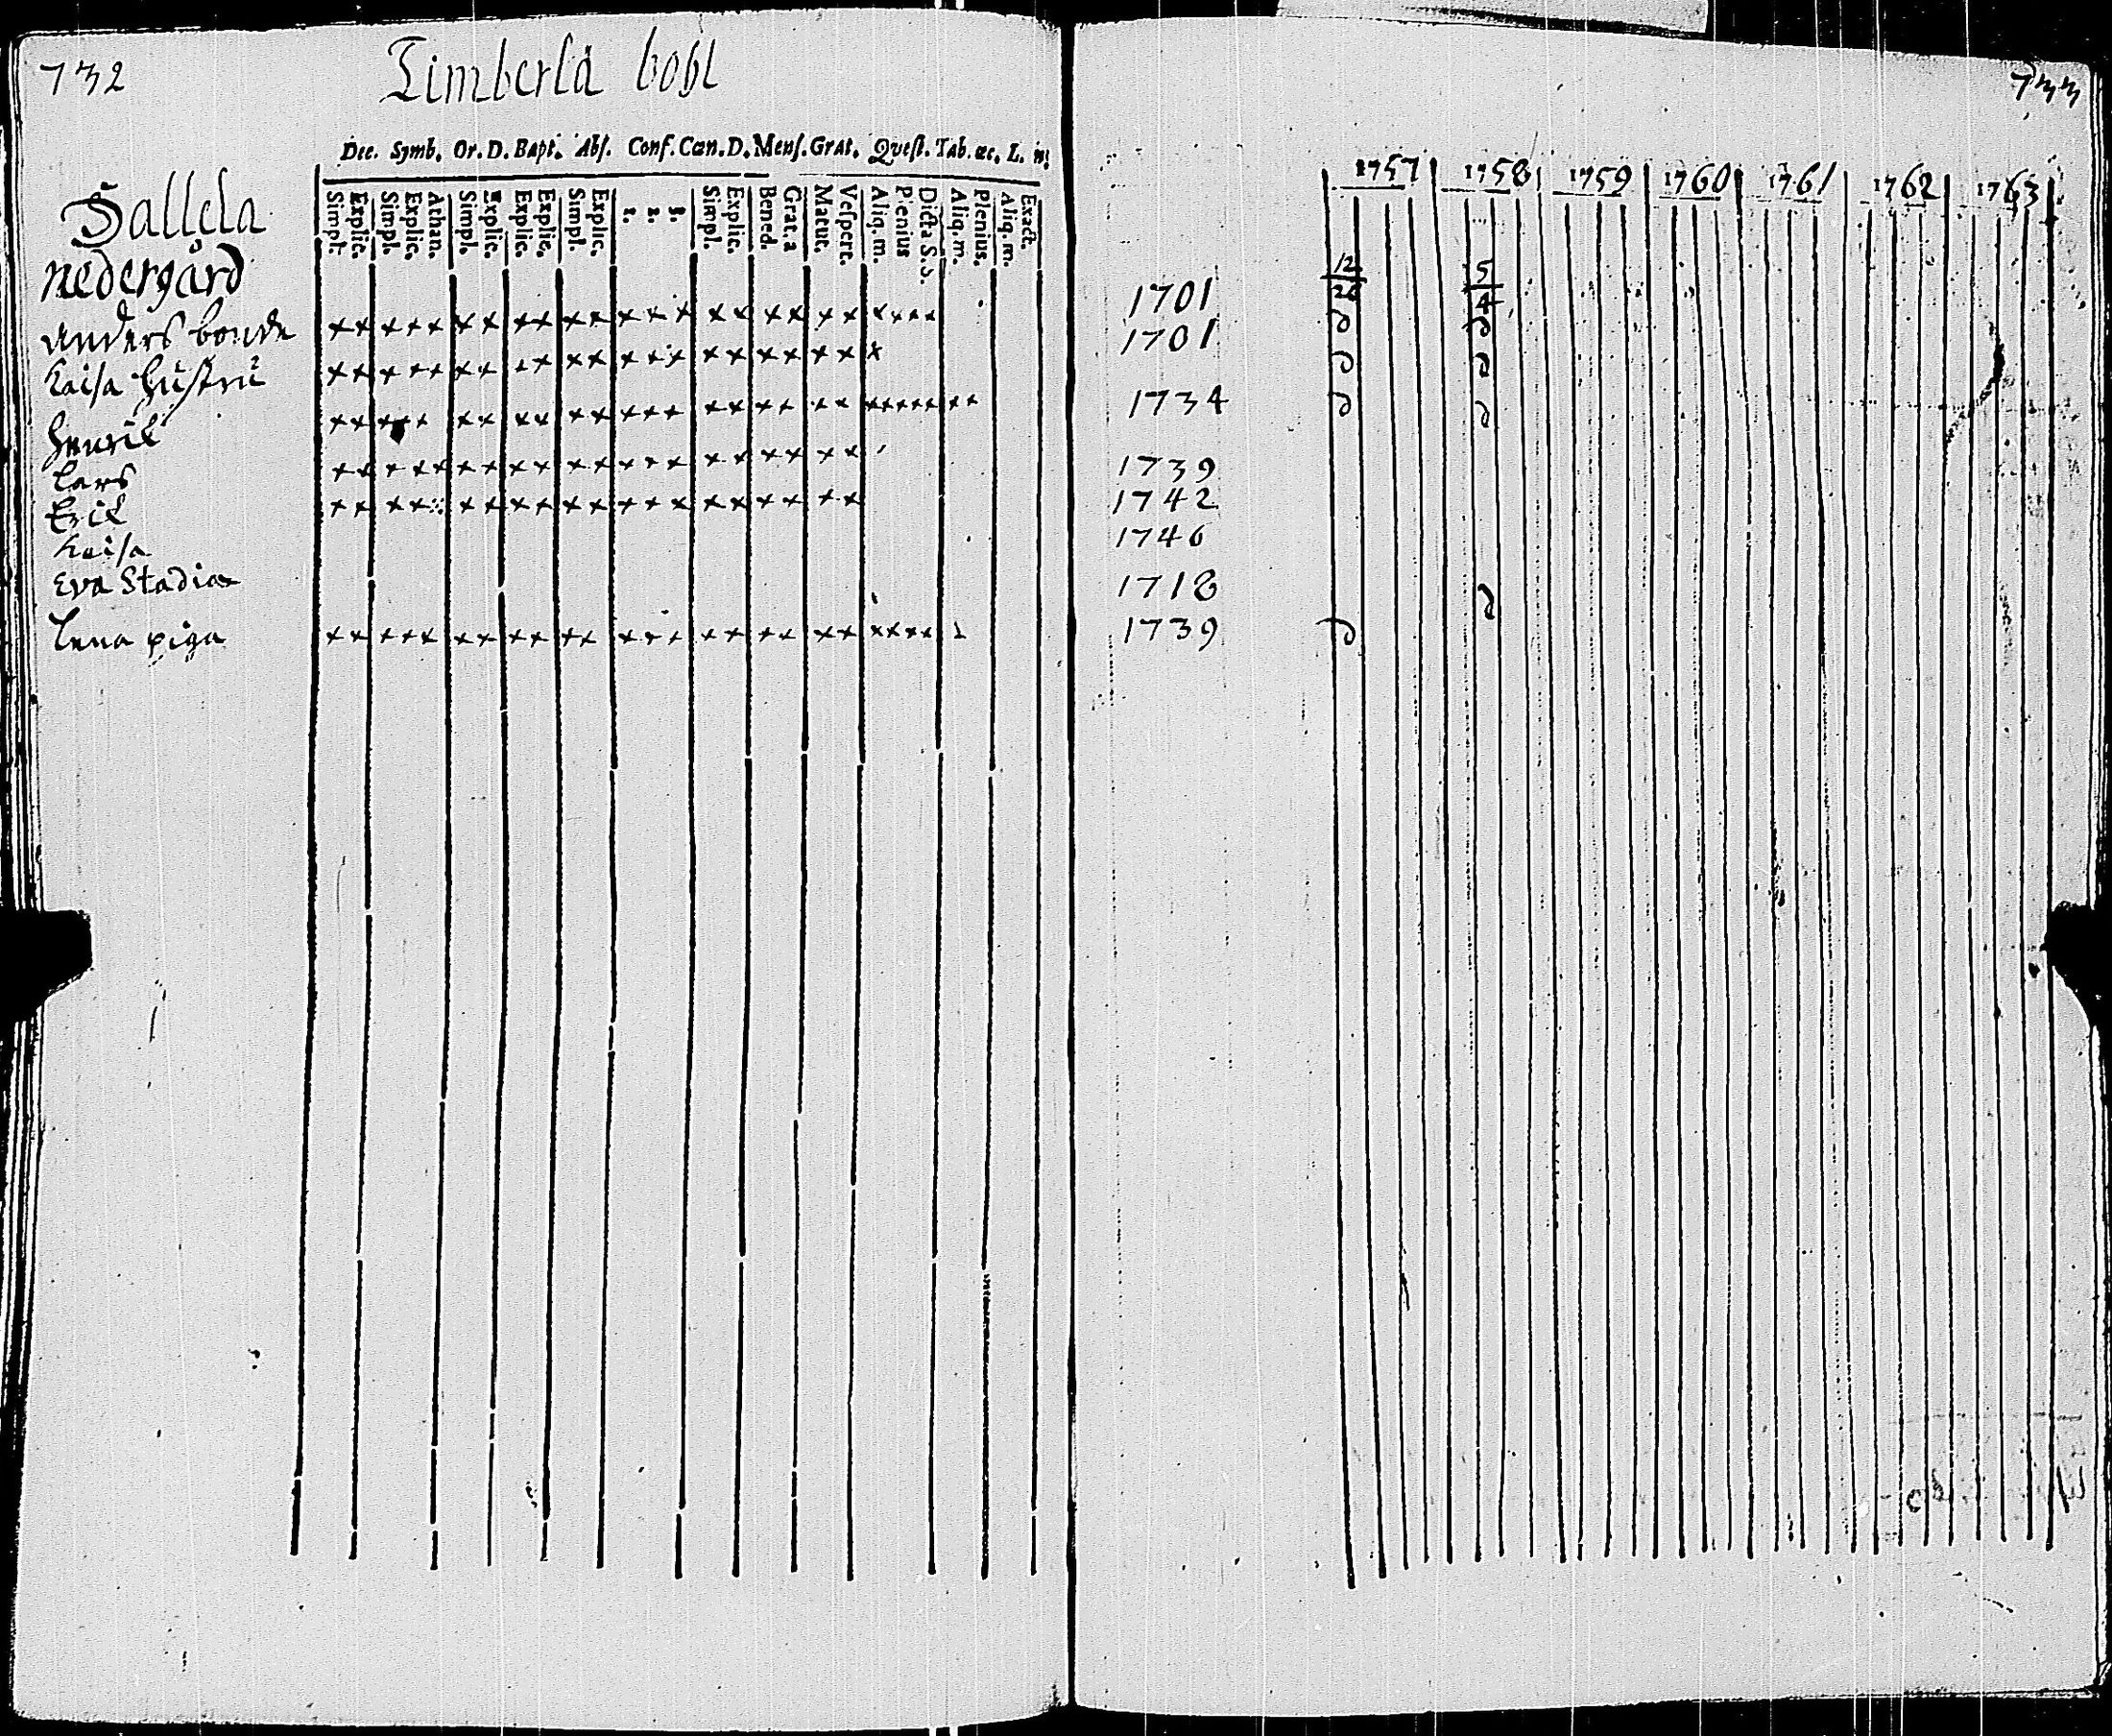 732
Timberlå bohl
Dec. Symb. Or. D. Bapt. Abſ. Conf. Cœn. D. Menſ. Grat. Quæſt. Tab. œc. L. n.
Simpl. Explic. Simpl. Explic. Athan. Simpl. Explic. Explic. Explic. Simpl. Explic. 1. 2. 3. Simpl. Explic. Bened. Grat. a Matut. Veſpert. Aliq. m. Plenius Dicta S. S. Aliq. m. Plenius. Aliq. m. Exact.
Sallela
nedergård
Anders bonde x x x x x x x x x x x x x x x x x x x x x x x
Kaisa hustru x x x x x x x x x x x x x x x x x x x x x
Henrik x x x x x x x x x x x x x x x x x x x x x x x x x x x
Lars x x x x x x x x x x x x x x x x x x x x
Erik x x x x x x x x x x x x x x x x x x x x
Kaisa
Eva Stadia
Lena piga x x x x x x x x x x x x x x x x x x x x x x x x
733
1757 1758 1759 1760 1761 1762 1763
12 5
26 4
1701
1701
1734
1739
1742
1746
1718
1739